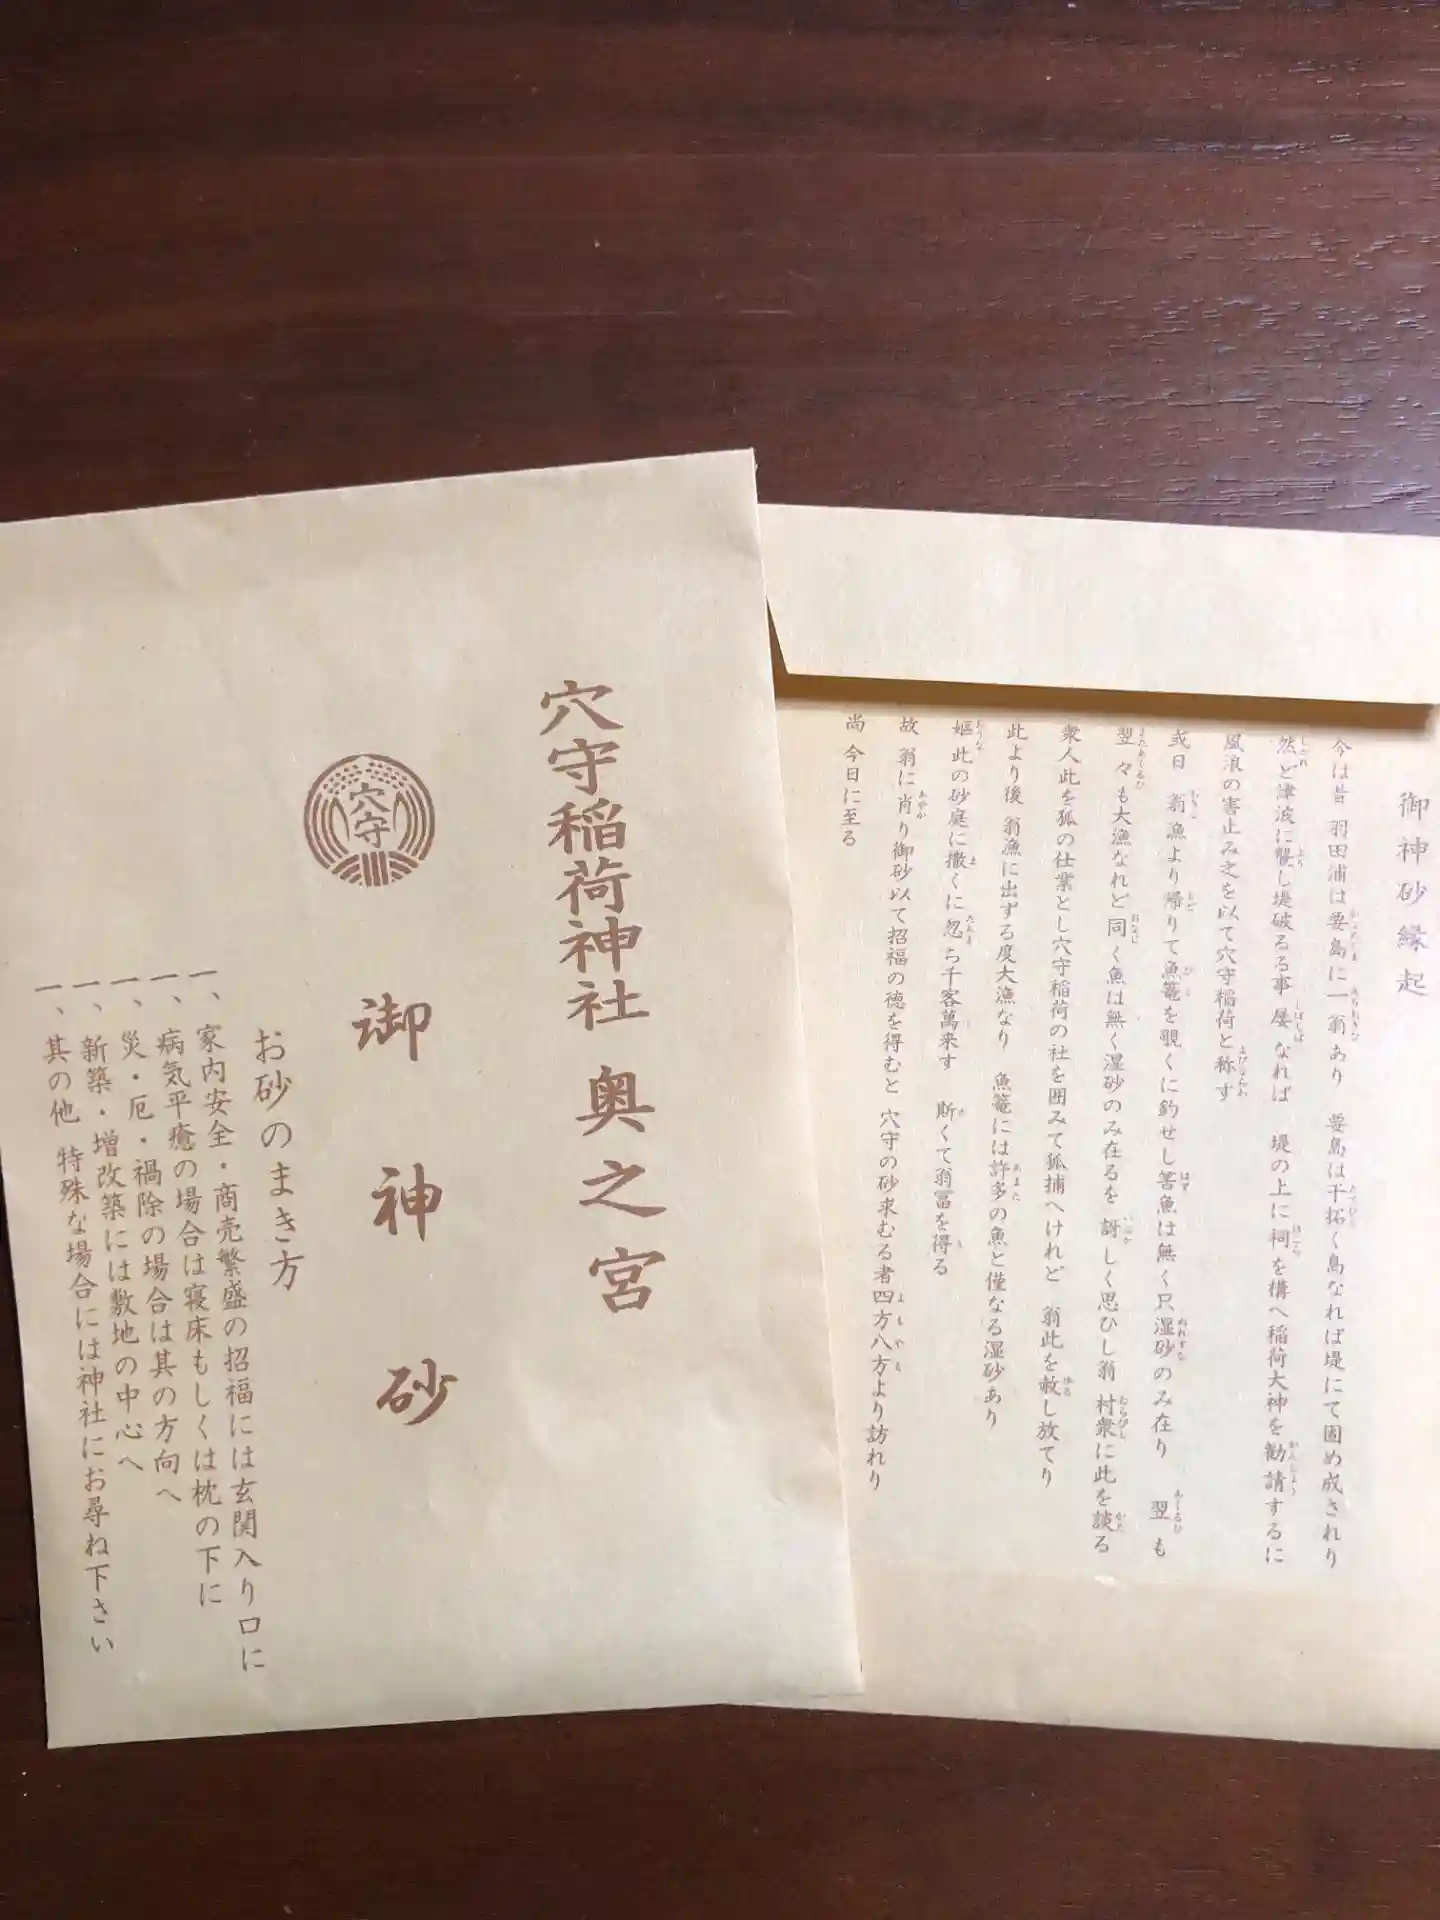 穴守稲荷神社 奥之宮
穴守
御神砂
お砂のまき方
一、家内安全・商売繁盛の招福には玄関入り口に
一、病気平癒の場合は寝床もしくは枕の下に
一、災・厄・禍除の場合は其の方向へ
一、新築・増改築には敷地の中心へ
一、其の他 特殊な場合には神社にお尋ね下さい
御神砂縁起
今は昔 羽田浦は要島に一翁あり 要島は干拓く島なれば堤にて固め成されり
然ど津波に襲し堤破るる事 屡なれば 堤の上に祠を構へ稲荷大神を勧請するに
風浪の害止み之を以て穴守稲荷と称す
或日 翁漁より帰りて魚篭を覗くに釣せし筈魚は無く只湿砂のみ在り 翌も
翌々も大漁なれど同く魚は無く湿砂のみ在るを 訝しく思ひし翁 村衆に此を談る
衆人此を狐の仕業とし穴守稲荷の社を囲みて狐捕へけれど 翁此を赦し放てり
此より後 翁漁に出ずる度大漁なり 魚篭には許多の魚と僅なる湿砂あり
嫗此の砂庭に撒くに忽ち千客萬来す 斯くて翁冨を得る
故 翁に肖り御砂以て招福の徳を得むと 穴守の砂求むる者四方八方より訪れり
尚 今日に至る